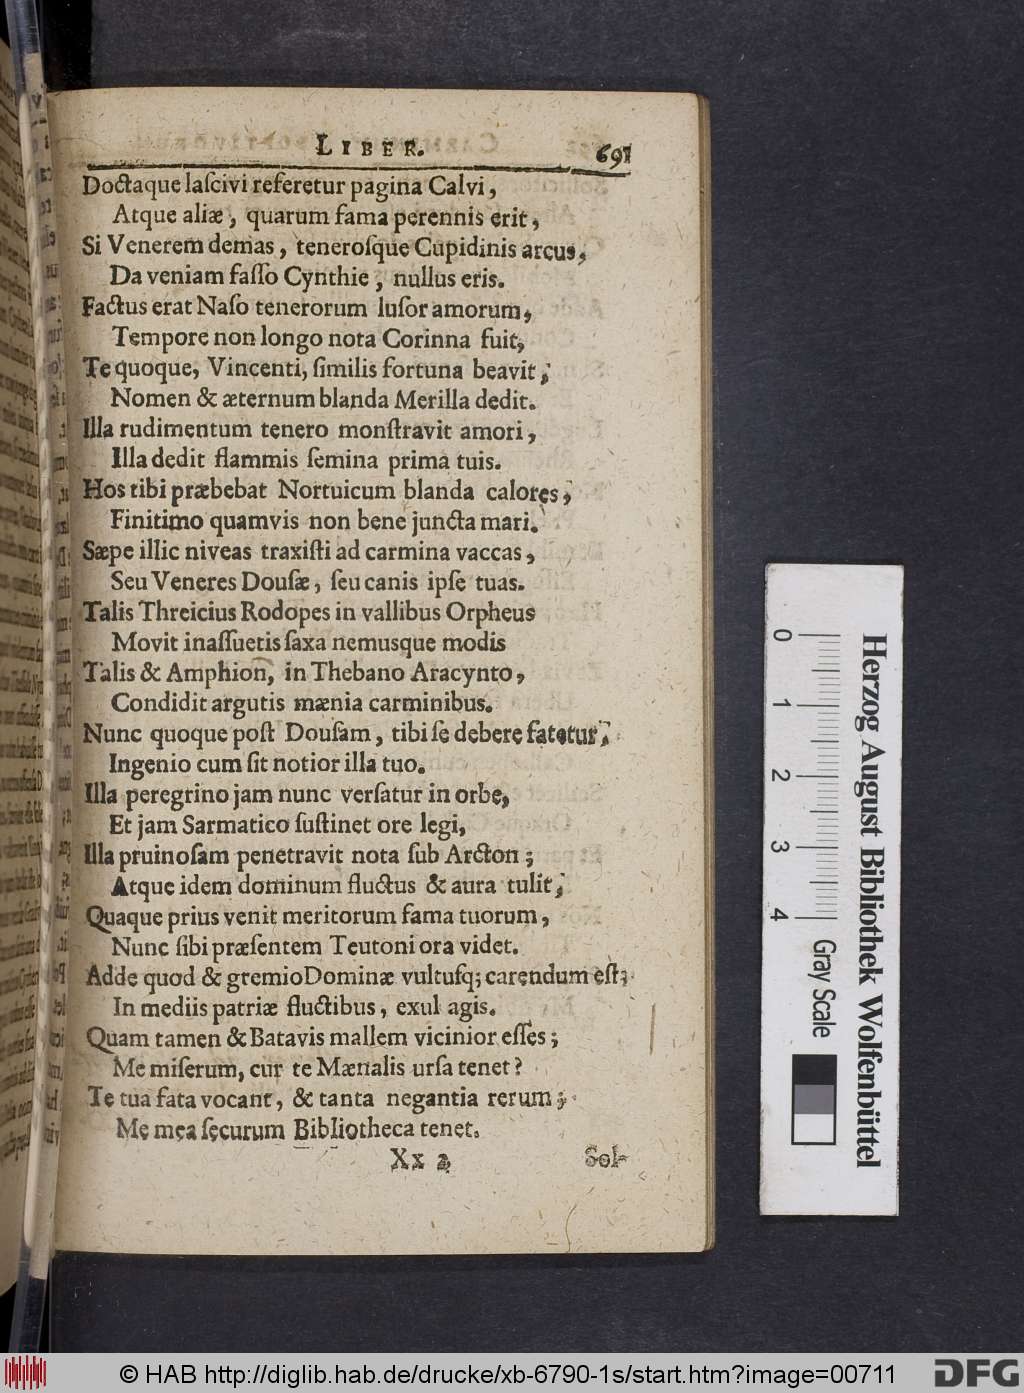 LIBER. 691
Doctaque laſcivi referetur pagina Calvi,
Atque aliæ, quarum fama perennis erit,
Si Venerem demas, teneroſque Cupidinis arcus,
Da veniam faſſo Cynthie, nullus eris.
Factus erat Naſo tenerorum luſor amorum,
Tempore non longo nota Corinna fuit,
Te quoque, Vincenti, ſimilis fortuna beavit,
Nomen & æternum blanda Merilla dedit.
Illa rudimentum tenero monſtravit amori,
Illa dedit flammis ſemina prima tuis.
Hos tibi præbebat Nortuicum blanda calores,
Finitimo quamvis non bene juncta mari.
Sæpe illic niveas traxiſti ad carmina vaccas,
Seu Veneres Douſæ, ſeu canis ipſe tuas.
Talis Threicius Rodopes in vallibus Orpheus
Movit inaſſuetis ſaxa nemusque modis
Talis & Amphion, in Thebano Aracynto,
Condidit argutis mænia carminibus.
Nunc quoque poſt Douſam, tibi ſe debere fatetur,
Ingenio cum ſit notior illa tuo.
Illa peregrino jam nunc verſatur in orbe,
Et jam Sarmatico ſuſtinet ore legi,
Illa pruinoſam penetravit nota ſub Arcton;
Atque idem dominum fluctus & aura tulit,
Quaque prius venit meritorum fama tuorum,
Nunc ſibi præſentem Teutoni ora videt.
Adde quod & gremio Dominæ vultuſq; carendum eſt;
In mediis patriæ fluctibus, exul agis.
Quam tamen & Batavis mallem vicinior eſſes;
Me miſerum, cur te Mænalis urſa tenet?
Te tua fata vocant, & tanta negantia rerum;
Me mea ſecurum Bibliotheca tenet.
Xx 2 Sol-
0 1 2 3 4
Gray Scale
Herzog August Bibliothek Wolfenbüttel
© HAB http://diglib.hab.de/drucke/xb-6790-1s/start.htm?image=00711
DFG